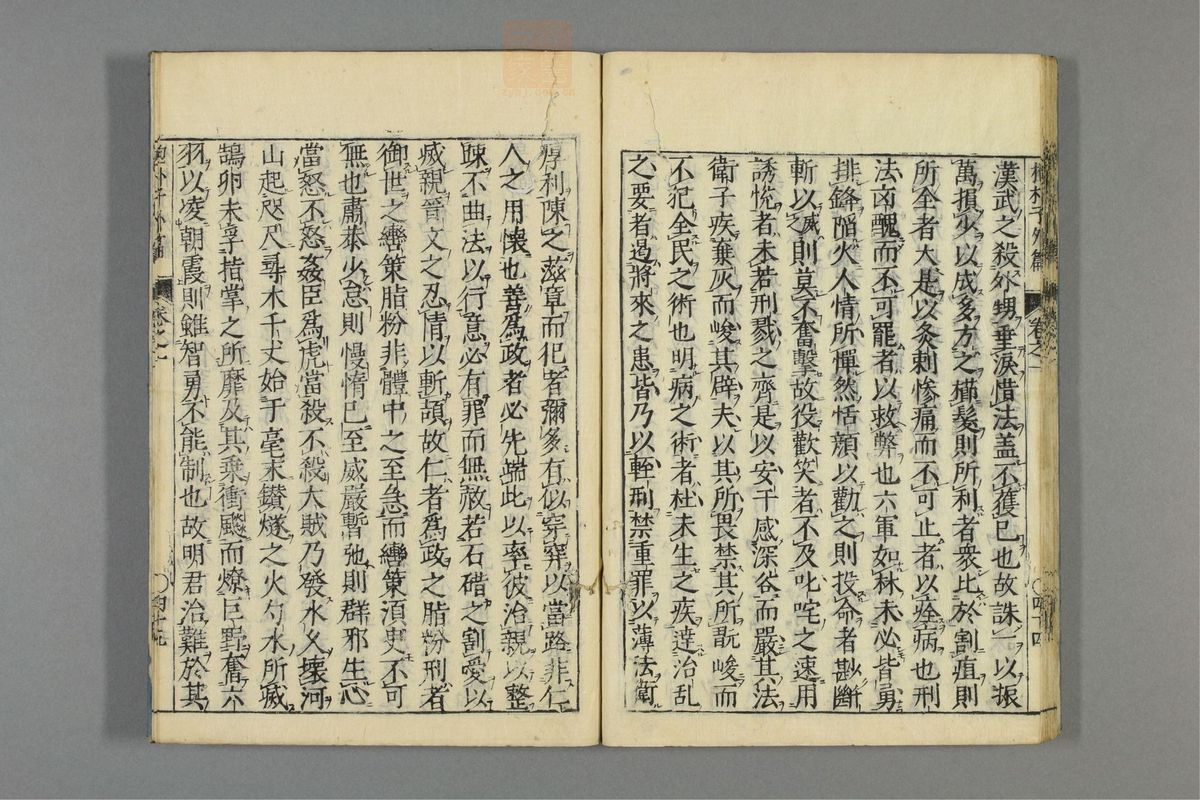 抱朴子外篇 卷之一 ○四十四
漢武之殺外甥垂淚惜法盖不獲已也故誅一以振
萬損少以成多方之櫛髮則所利者衆比於割疽則
所全者大是以灸刺慘痛而不可止者以痊病也刑
法凶醜而不可罷者以救弊也六軍如林未必皆勇
排鋒陷火人情所憚然恬顏以勸之則投命者尠斷
斬以威則莫不奮擊故役歡笑者不及叱咤之速用
誘悅者未若刑戮之齊是以安于感深谷而嚴其法
衛子疾棄灰而峻其辟夫以其所畏禁其所翫峻而
不犯全民之術也明病之術者杜未生之疾達治乱
之要者遏將來之患皆乃以輕刑禁重罪以薄法衛
厚利陳之滋章而犯者彌多有似穿穽以當路非仁
人之用懷也善爲政者必先端此以率彼治親以整
踈不曲法以行意必有罪而無赦若石碏之割愛以
威親晉文之忍情以斬頡故仁者爲政之脂粉刑者
御世之轡策脂粉非體中之至急而轡策須臾不可
無也肅恭少怠則慢惰已至威嚴暫弛則群邪生心
當怒不怒姦臣爲虎當殺不殺大賊乃發水久壞河
山起咫尺尋木千丈始于毫末鑚燧之火勺水所滅
鵠卵未孚指掌之所靡及其乗衝飈而燎巨野奮六
羽以凌朝霞則雖智勇不能制也故明君治難於其
抱朴子外篇 卷之一 ○四十五